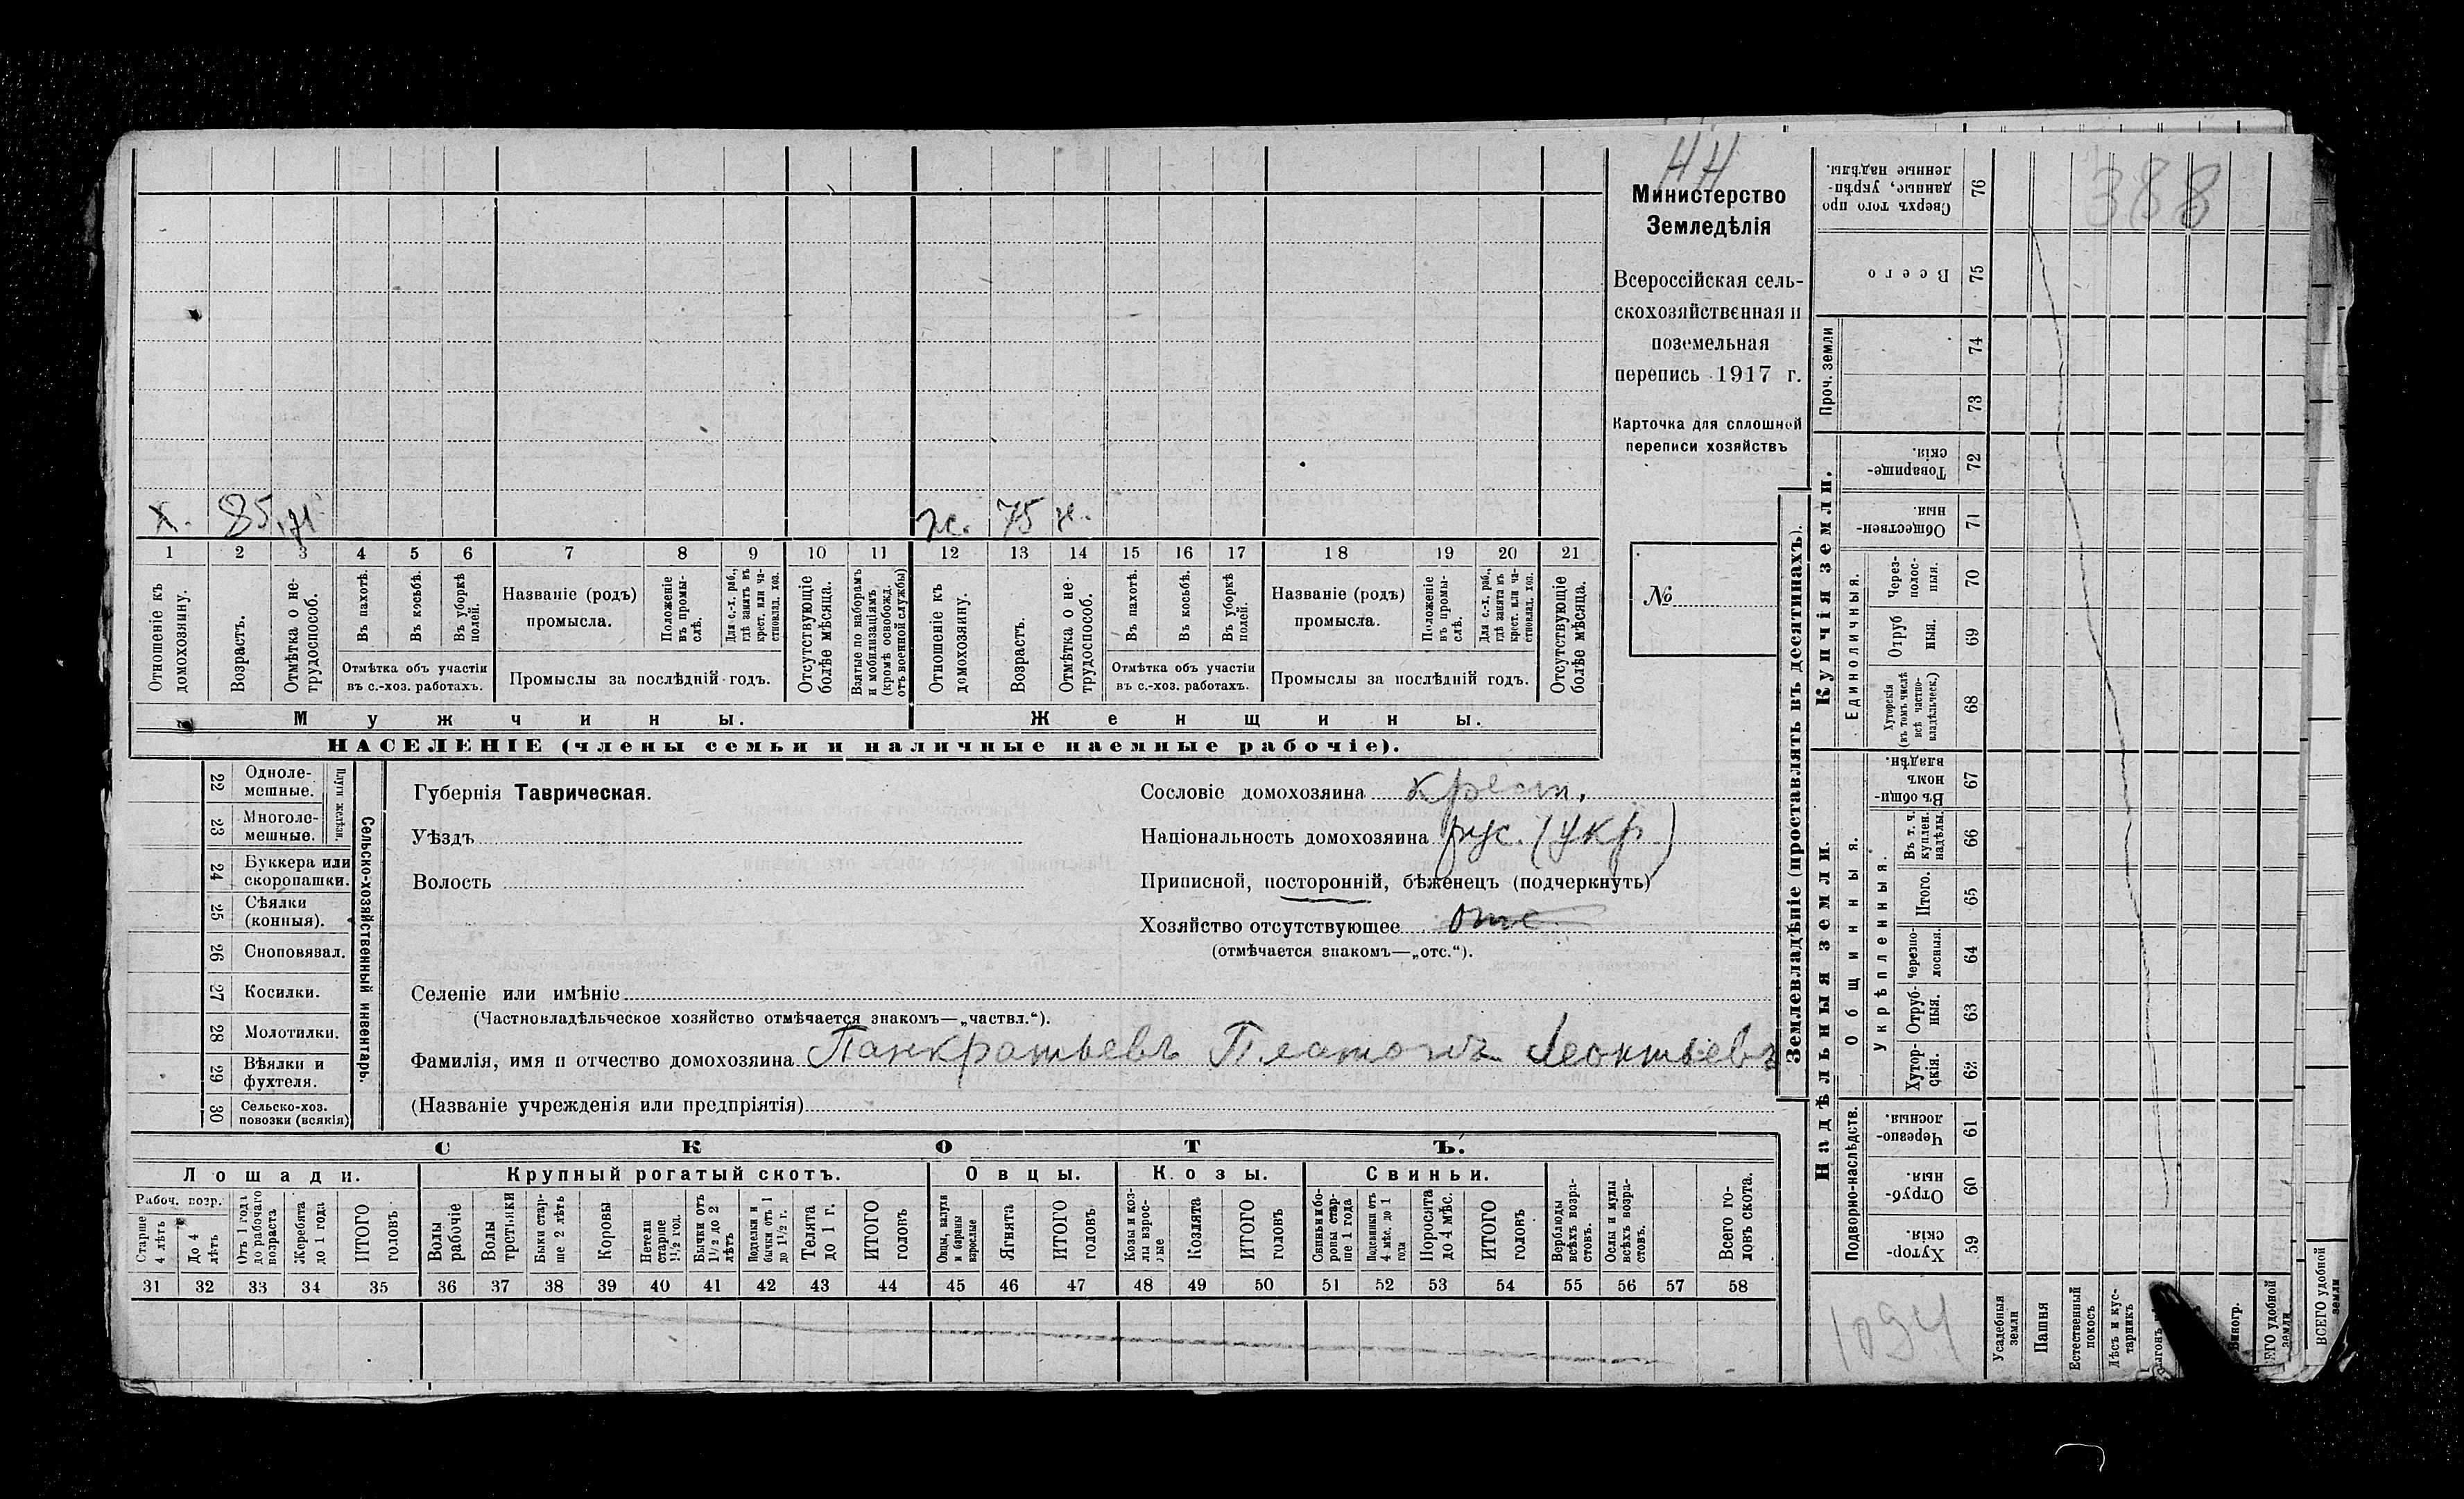 НН
388
Министерство
Земледѣлія
Всероссійская сель-
скохозяйственная и
поземельная
перепись 1917 г.
Карточка для сплошной
переписи хозяйствъ
№
х. 85 н. ж. 75 н.
1 2 3 4 5 6 7 8 9 10 11 12 13 14 15 16 17 18 19 20 21
Отношеніе къ домохозяину.
Возрастъ.
Отмѣтка о не-трудоспособ.
Въ пахотѣ.
Въ косьбѣ.
Въ уборкѣ полей.
Отмѣтка объ участіи
въ с.-хоз. работахъ.
Названіе (родъ)
промысла.
Положеніе въ промы-слѣ.
Для с.-х. раб., гдѣ занятъ въ крест. или ча-стновлад. хоз.
Промыслы за послѣдній годъ.
Отсутствующіе болѣе мѣсяца.
Взятые по наборамъ и мобилизаціямъ (кромѣ освобожд. отъ военной службы)
Отношеніе къ домохозяину.
Возрастъ.
Отмѣтка о не-трудоспособ.
Въ пахотѣ.
Въ косьбѣ.
Въ уборкѣ полей.
Отмѣтка объ участіи
въ с.-хоз. работахъ.
Названіе (родъ)
промысла.
Положеніе въ промы-слѣ.
Для с.-х. раб., гдѣ занята въ крест. или ча-стновлад. хоз.
Промыслы за послѣдній годъ.
Отсутствующіе болѣе мѣсяца.
Мужчины. Женщины.
НАСЕЛЕНІЕ (члены семьи и наличные наемные рабочіе).
22 Одноле-мешные.
23 Многоле-мешные.
Плуги желѣзн.
24 Буккера или скоропашки.
25 Сѣялки (конныя).
26 Сноповязал.
27 Косилки.
28 Молотилки.
29 Вѣялки и фухтеля.
30 Сельско-хоз. повозки (всякія)
Сельско-хозяйственный инвентарь.
Губернія Таврическая.
Уѣздъ
Волость
Сословіе домохозяина крест.
Національность домохозяина рус. (укр.)
Приписной, посторонній, бѣженецъ (подчеркнуть)
Хозяйство отсутствующее отс
(отмѣчается знакомъ—„отс.“).
Селеніе или имѣніе
(Частновладѣльческое хозяйство отмѣчается знакомъ—„частвл.“).
Фамилія, имя и отчество домохозяина Панкратьевъ Платонъ Леонтьевъ
(Названіе учрежденія или предпріятія)
СКОТЪ.
Лошади. Крупный рогатый скотъ. Овцы. Козы. Свиньи.
Рабоч. возр.
Старше 4 лѣтъ
До 4 лѣтъ
Отъ 1 года до рабочаго возраста
Жеребята до 1 года
ИТОГО головъ
Волы рабочіе
Волы третьяки
Быки стар-ше 2 лѣтъ
Коровы
Нетели старше 1½ год.
Бычки отъ 1½ до 2 лѣтъ
Подтелки и бычки отъ 1 до 1½ г.
Телята до 1 г.
ИТОГО головъ
Овцы, валухи и бараны взрослые
Ягнята
ИТОГО головъ
Козы и коз-лы взрос-лые
Козлята
ИТОГО головъ
Свиньи и бо-ровы стар-ше 1 года
Подсвинки отъ 4 мѣс. до 1 года
Поросята до 4 мѣс.
ИТОГО головъ
Верблюды всѣхъ возра-стовъ.
Ослы и мулы всѣхъ возра-стовъ.
Всего го-ловъ скота.
31 32 33 34 35 36 37 38 39 40 41 42 43 44 45 46 47 48 49 50 51 52 53 54 55 56 57 58
Землевладѣніе (проставлять въ десятинахъ).
Сверхъ того про-данные, укрѣп-ленные надѣлы. 76
Всего 75
Проч. земли
74
73
Купчія земли.
Товарище-скія. 72
Обществен-ныя. 71
Единоличныя.
Через-полос-ныя. 70
Отруб ныя. 69
Хуторскія (въ томъ числѣ всѣ частно-владѣльческ.) 68
Надѣльныя земли.
Общинныя.
Въ общин-номъ владѣн. 67
Укрѣпленныя.
Въ т. ч. куплен. надѣлы. 66
Итого. 65
Черезпо-лосныя. 64
Отруб-ныя. 63
Хутор-скія. 62
Подворно-наслѣдств.
Черезпо-лосныя 61
Отруб-ныя. 60
Хутор-скія. 59
1094
Усадебныя земли
Пашня
Естественный покосъ
Лѣсъ и кус-тарникъ
Виногр.
ЕГО удобной земли
ВСЕГО удобной земли